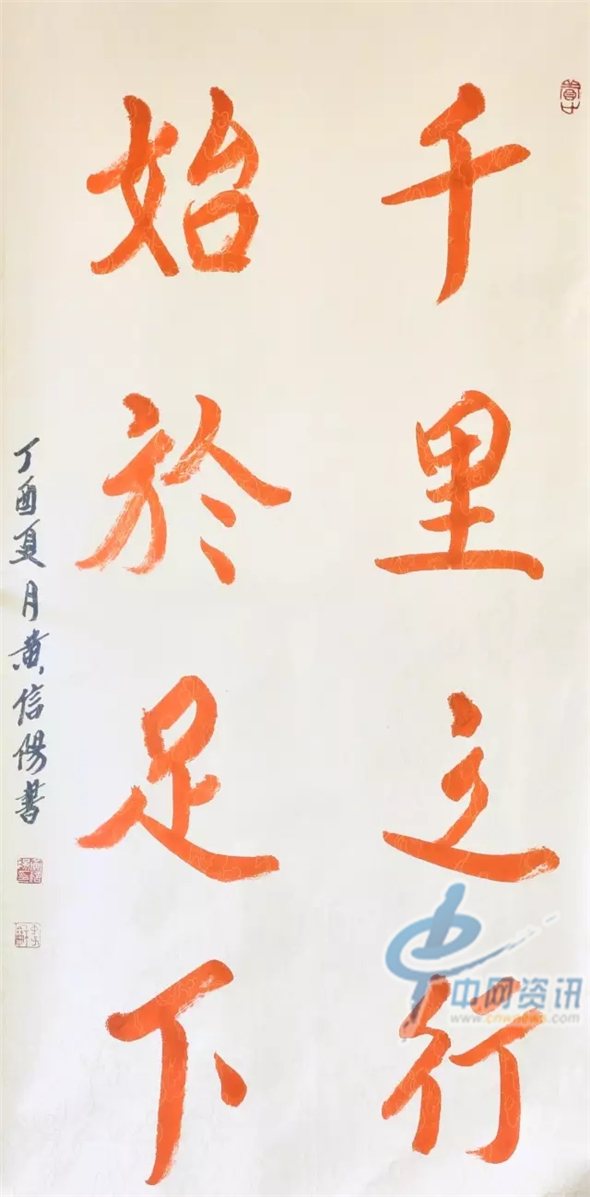 千里之行
始於足下
丁酉夏月黄信陽書
中网资讯
www.cnwnews.com